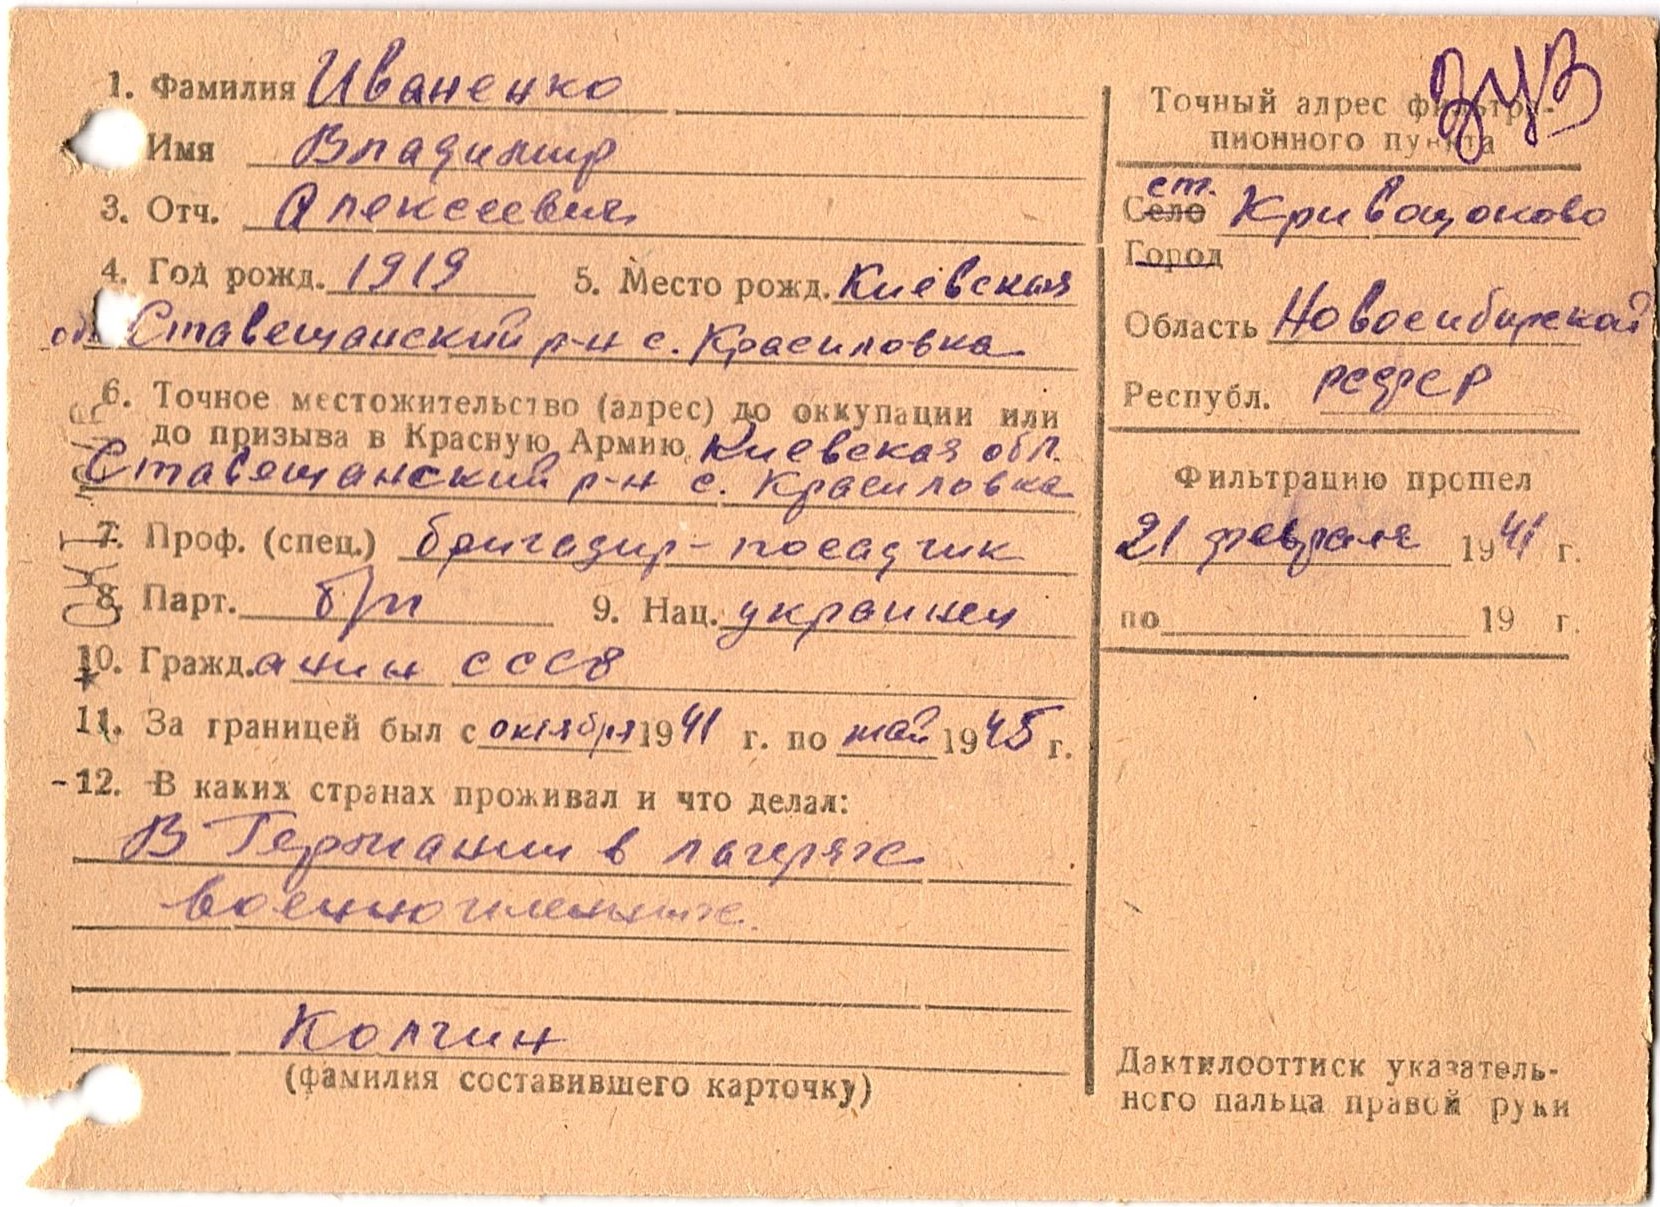 1. Фамилия Иваненко
Имя Владимир
3. Отч. Алексеевич
4. Год рожд. 1919 5. Место рожд. Киевская
Ставещанский р-н с. Красиловка
6. Точное местожительство (адрес) до оккупации или
до призыва в Красную Армию Киевская обл.
Ставещанский р-н с. Красиловка
7. Проф. (спец.) бригадир-посадчик
8. Парт. б/п 9. Нац. украинец
10. Гражд.анин СССР
11. За границей был с октября 1941 г. по май 1945 г.
-12. В каких странах проживал и что делал:
В Германии в лагерях
военнопленных.
Колчин
(фамилия составившего карточку)
Точный адрес фильтра-
пионного пункта
ст.
Село Кривощоково
Город
Область Новосибирской
Республ. РСФСР
Фильтрацию прошел
21 февраля 1941 г.
по 19 г.
Дактилооттиск указатель-
ного пальца правой руки